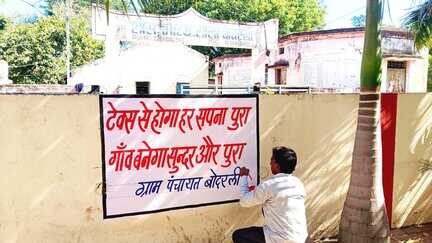 टेक्स से होगा हर सपना पुरा
गाँव बनेगा सुन्दर और पुरा
ग्राम पंचायत बोदरली